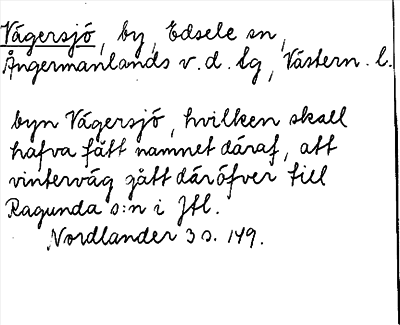 Vägersjö, by, Edsele sn,
Ångermanlands v. d. lg, Västern. l.
byn Vägersjö, hvilken skall
hafva fått namnet däraf, att
vinterväg gått däröfver till
Ragunda s:n i Jtl.
Nordlander 3 s. 149.